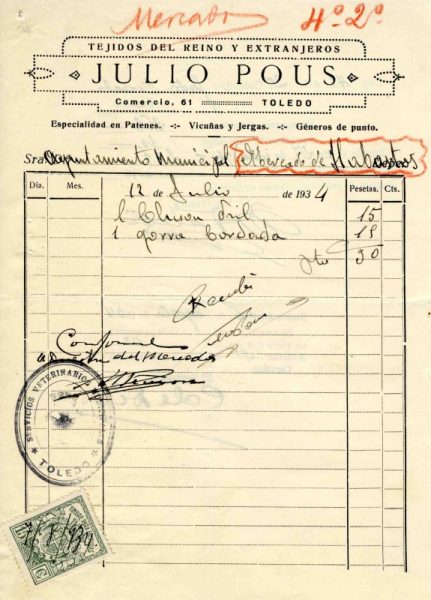 Mercado 4º 2º
TEJIDOS DEL REINO Y EXTRANJEROS
JULIO POUS
Comercio, 61 TOLEDO
Especialidad en Patenes. -:- Vicuñas y Jergas. -:- Géneros de punto.
Sra Ayuntamiento Municipal Mercado de Abastos
Día. Mes. 12 de Julio de 1934 Pesetas. Cts.
1 dril 15
1 gorra bordada 15
30
Recibí
Conforme
del Mercado
SERVICIOS VETERINARIOS
TOLEDO
1934